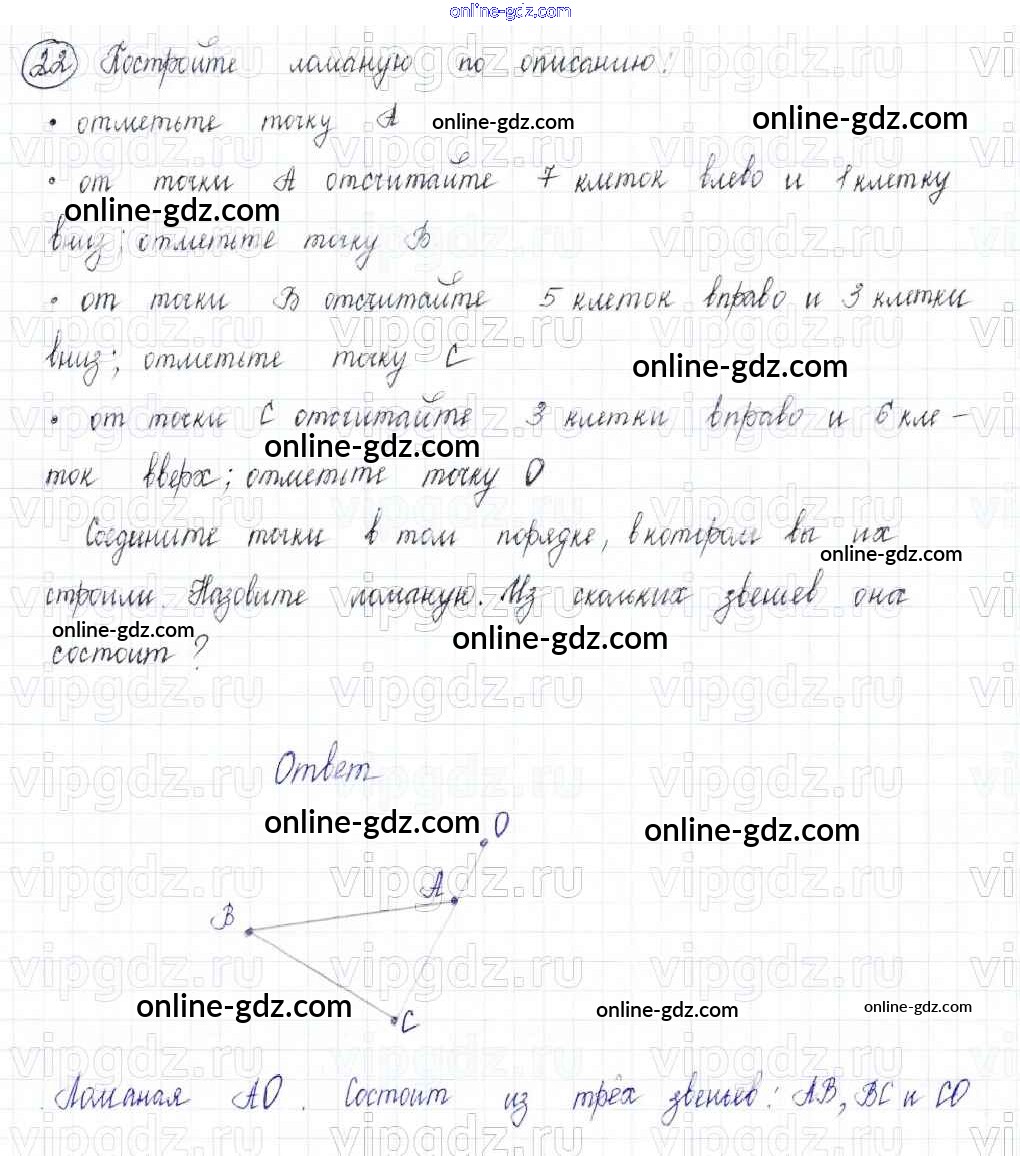 online-gdz.com
22 Постройте ломаную по описанию:
• отметьте точку А online-gdz.com online-gdz.com
• от точки А отсчитайте 7 клеток влево и 1 клетку
online-gdz.com
вниз; отметьте точку В
• от точки В отсчитайте 5 клеток вправо и 3 клетки
вниз; отметьте точку С online-gdz.com
• от точки С отсчитайте 3 клетки вправо и 6 кле-
online-gdz.com
ток вверх; отметьте точку О
Соедините точки в том порядке, в котором вы их
online-gdz.com
строили. Назовите ломаную. Из скольких звеньев она
online-gdz.com online-gdz.com
состоит?
vipgdz.ru vipgdz.ru vipgdz.ru vi
Ответ
vipgdz.ru vipgdz.ru vipgdz.ru vi
online-gdz.com О online-gdz.com
А
В
online-gdz.com online-gdz.com online-gdz.com
С
Ломаная АО. Состоит из трёх звеньев: АВ, ВС и СО